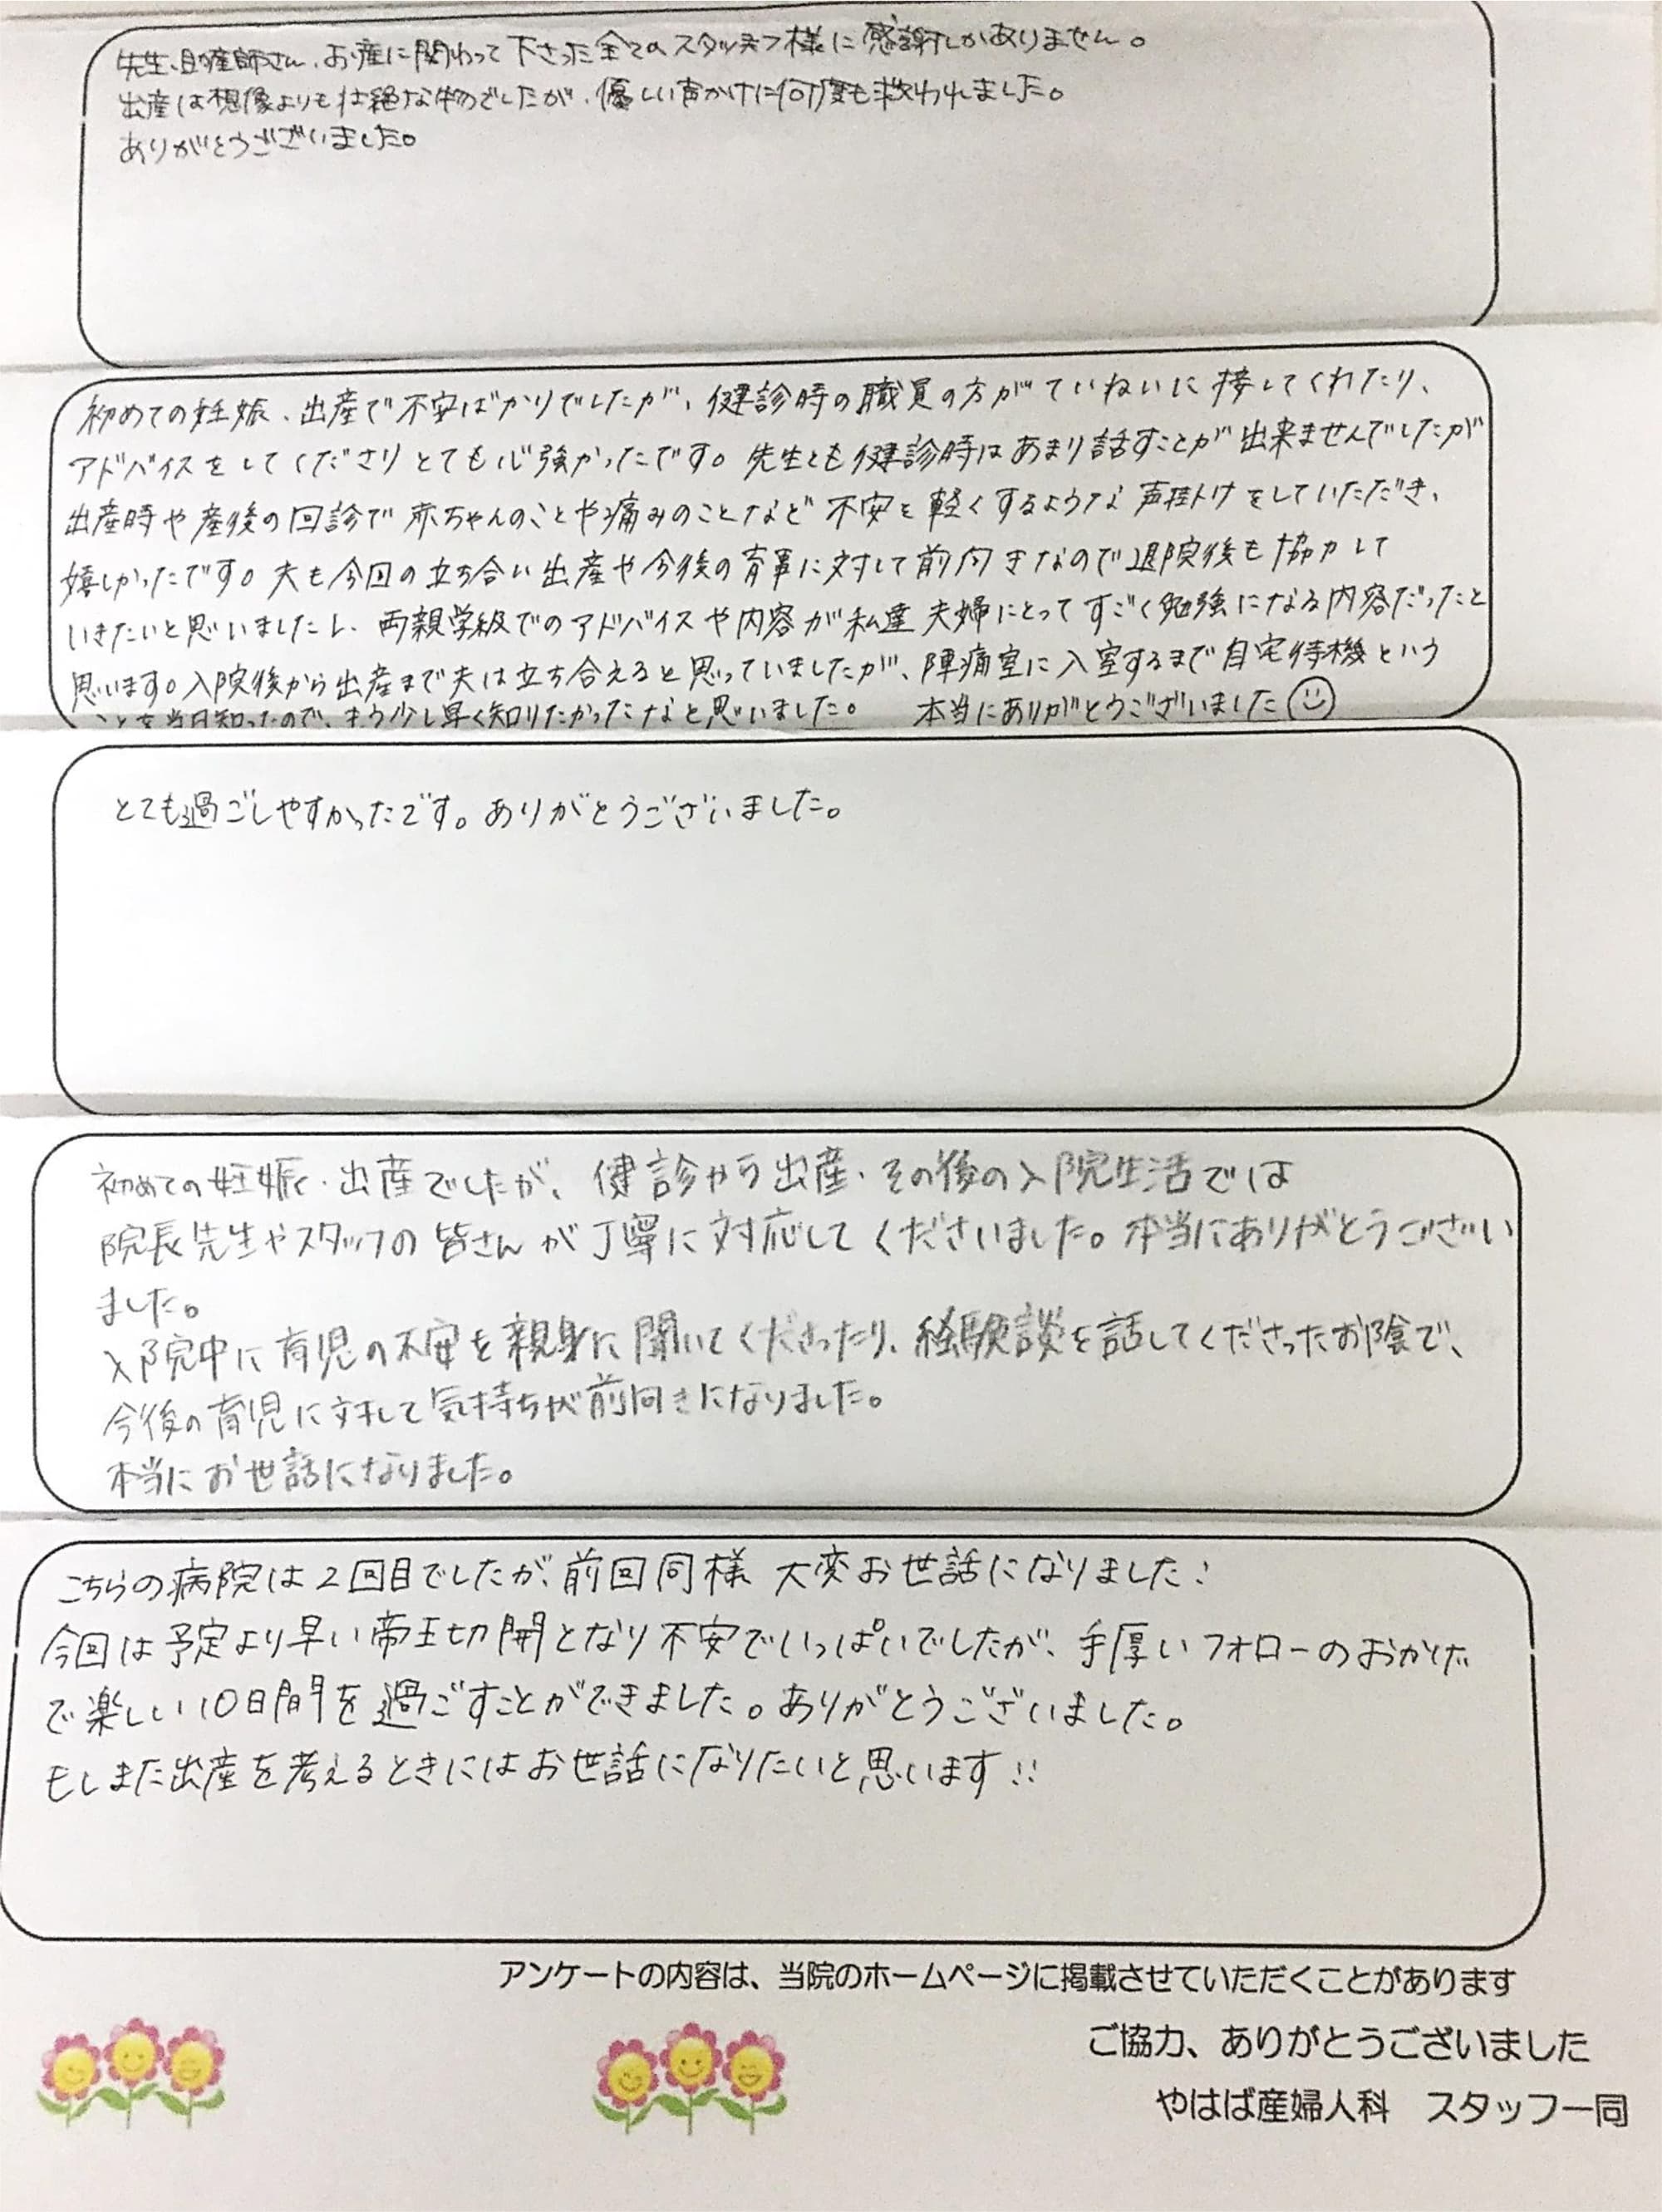 先生、助産師さん、お産に関わって下さった全てのスタッフ様に感謝しかありません。
出産は想像よりも壮絶な物でしたが、優しい声かけに何度も救われました。
ありがとうございました。
初めての妊娠、出産で不安ばかりでしたが、健診時の職員の方がていねいに接してくれたり、
アドバイスをしてくださりとても心強かったです。先生とも健診時はあまり話すことが出来ませんでしたが
出産時や産後の回診で赤ちゃんのことや痛みのことなど不安を軽くするような声掛けをしていただき、
嬉しかったです。夫も今回の立ち合い出産や今後の育事に対して前向きなので退院後も協力して
いきたいと思いましたし、両親学級でのアドバイスや内容が私達夫婦にとってすごく勉強になる内容だったと
思います。入院後から出産まで夫は立ち合えると思っていましたが、陣痛室に入室するまで自宅待機という
ことを当日知ったので、もう少し早く知りたかったなと思いました。 本当にありがとうございました
とても過ごしやすかったです。ありがとうございました。
初めての妊娠・出産でしたが、健診から出産・その後の入院生活では
院長先生やスタッフの皆さんが丁寧に対応してくださいました。本当にありがとうござい
ました。
入院中に育児の不安を親身に聞いてくださったり、経験談を話してくださったお陰で、
今後の育児に対して気持ちが前向きになりました。
本当にお世話になりました。
こちらの病院は2回目でしたが、前回同様 大変お世話になりました!
今回は予定より早い帝王切開となり不安でいっぱいでしたが、手厚いフォローのおかげ
で楽しい10日間を過ごすことができました。ありがとうございました。
もしまた出産を考えるときにはお世話になりたいと思います!!
アンケートの内容は、当院のホームページに掲載させていただくことがあります
ご協力、ありがとうございました
やはば産婦人科 スタッフ一同